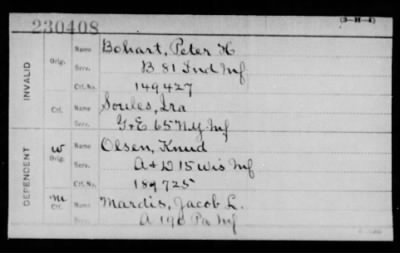 230408
(3-H-4)
INVALID
Orig. Name Bohart, Peter H
Serv. B 81 Ind Inf
Ctf. No. 149427
Ctf. Name Soules, Ira
Serv. G+E 65 N.Y. Inf
DEPENDENT
W Orig. Name Olsen, Knud
Serv. A+D 15 Wis Inf
Ctf. No. 189725
M Ctf. Name Mardis, Jacob L.
Serv. A 190 Pa Inf